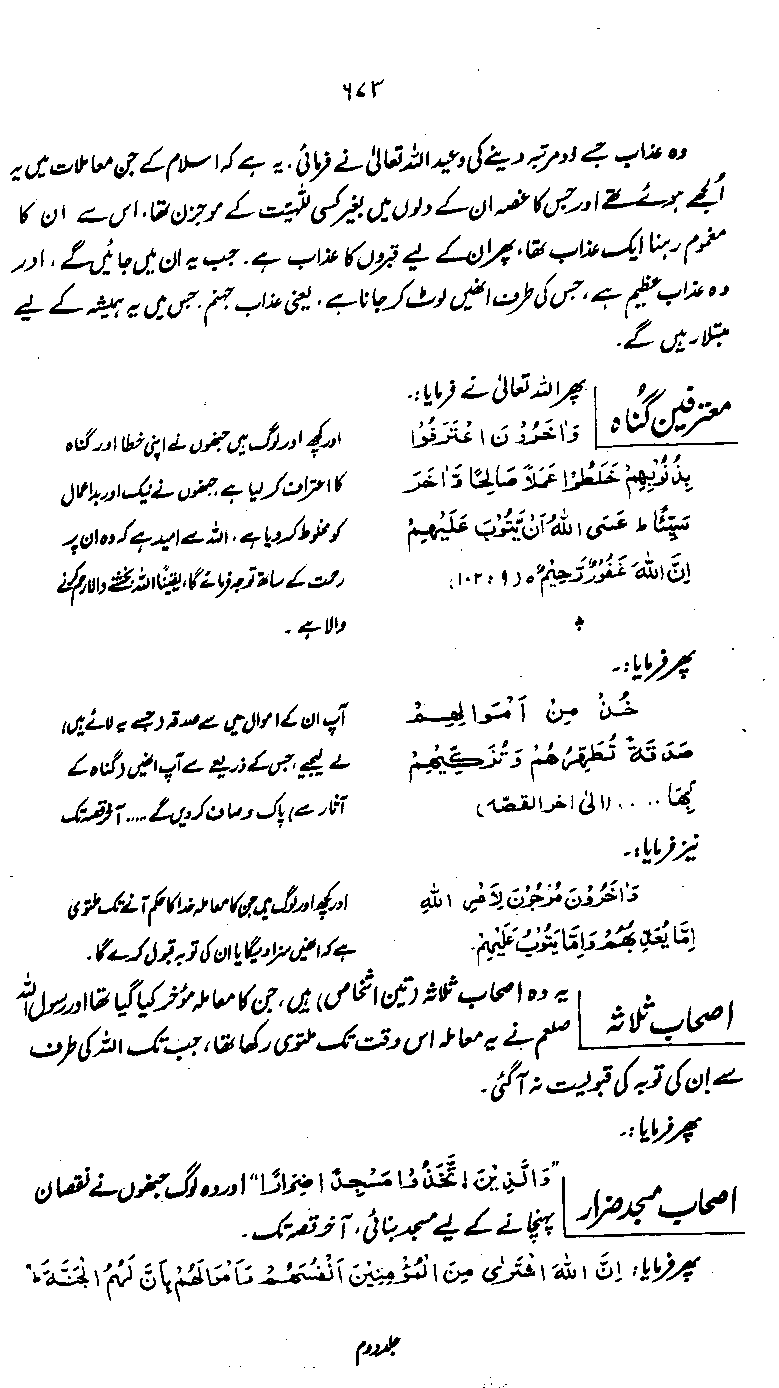 ۶۷۳
وہ عذاب جسے دو مرتبہ دینے کی وعید اللہ تعالیٰ نے فرمائی، یہ ہے کہ اسلام کے جن معاملات میں یہ
اُلجھے ہوئے تھے اور جس کا غصہ ان کے دلوں میں بغیر کسی للّٰہیت کے موجزن تھا، اس سے ان کا
مغموم رہنا ایک عذاب تھا، پھر ان کے لیے قبروں کا عذاب ہے۔ جب یہ ان میں جائیں گے، اور
وہ عذاب عظیم ہے، جس کی طرف انھیں لوٹ کر جانا ہے، یعنی عذاب جہنم۔ جس میں یہ ہمیشہ کے لیے
مبتلا رہیں گے۔
معترفینِ گناہ
پھر اللہ تعالیٰ نے فرمایا:۔
وَاٰخَرُوْنَ اعْتَرَفُوْا
بِذُنُوْبِهِمْ خَلَطُوْا عَمَلًا صَالِحًا وَّاٰخَرَ
سَيِّئًا ط عَسَى اللهُ اَنْ يَّتُوْبَ عَلَيْهِمْ
اِنَّ اللهَ غَفُوْرٌ رَّحِيْمٌ ٥ (۹ : ۱۰۲)
اور کچھ اور لوگ ہیں جنھوں نے اپنی خطا اور گناہ
کا اعتراف کر لیا ہے، جنھوں نے نیک اور بد اعمال
کو مخلوط کر دیا ہے، اللہ سے امید ہے کہ وہ ان پر
رحمت کے ساتھ توجہ فرمائے گا، یقیناً اللہ بخشنے والا رحم کرنے
والا ہے۔
پھر فرمایا:۔
خُذْ مِنْ اَمْوَالِهِمْ
صَدَقَةً تُطَهِّرُهُمْ وَتُزَكِّيْهِمْ
بِهَا ..... (الیٰ اٰخر القصّہ)
آپ ان کے اموال میں سے صدقہ (جسے یہ لائے ہیں)
لے لیجیے، جس کے ذریعے سے آپ انھیں (گناہ کے
آثار سے) پاک و صاف کر دیں گے.... آخر قصہ تک
نیز فرمایا:۔
وَاٰخَرُوْنَ مُرْجَوْنَ لِاَمْرِ اللهِ
اِمَّا يُعَذِّبُهُمْ وَاِمَّا يَتُوْبُ عَلَيْهِمْ۔
اور کچھ اور لوگ ہیں جن کا معاملہ خدا کا حکم آنے تک ملتوی
ہے کہ انھیں سزا دیگا یا ان کی توبہ قبول کرے گا۔
اصحابِ ثلاثہ
یہ وہ اصحاب ثلاثہ (تین اشخاص) ہیں، جن کا معاملہ مؤخر کیا گیا تھا اور رسول اللہ
صلعم نے یہ معاملہ اس وقت تک ملتوی رکھا تھا، جب تک اللہ کی طرف
سے اِن کی توبہ کی قبولیت نہ آ گئی۔
پھر فرمایا:۔
اصحاب مسجد ضرار
"وَالَّذِيْنَ اتَّخَذُوْا مَسْجِدًا ضِرَارًا" اور وہ لوگ جنھوں نے نقصان
پہنچانے کے لیے مسجد بنائی، آخر قصہ تک۔
پھر فرمایا: اِنَّ اللهَ اشْتَرٰى مِنَ الْمُؤْمِنِيْنَ اَنْفُسَهُمْ وَاَمْوَالَهُمْ بِاَنَّ لَهُمُ الْجَنَّةَ ط
جلد دوم